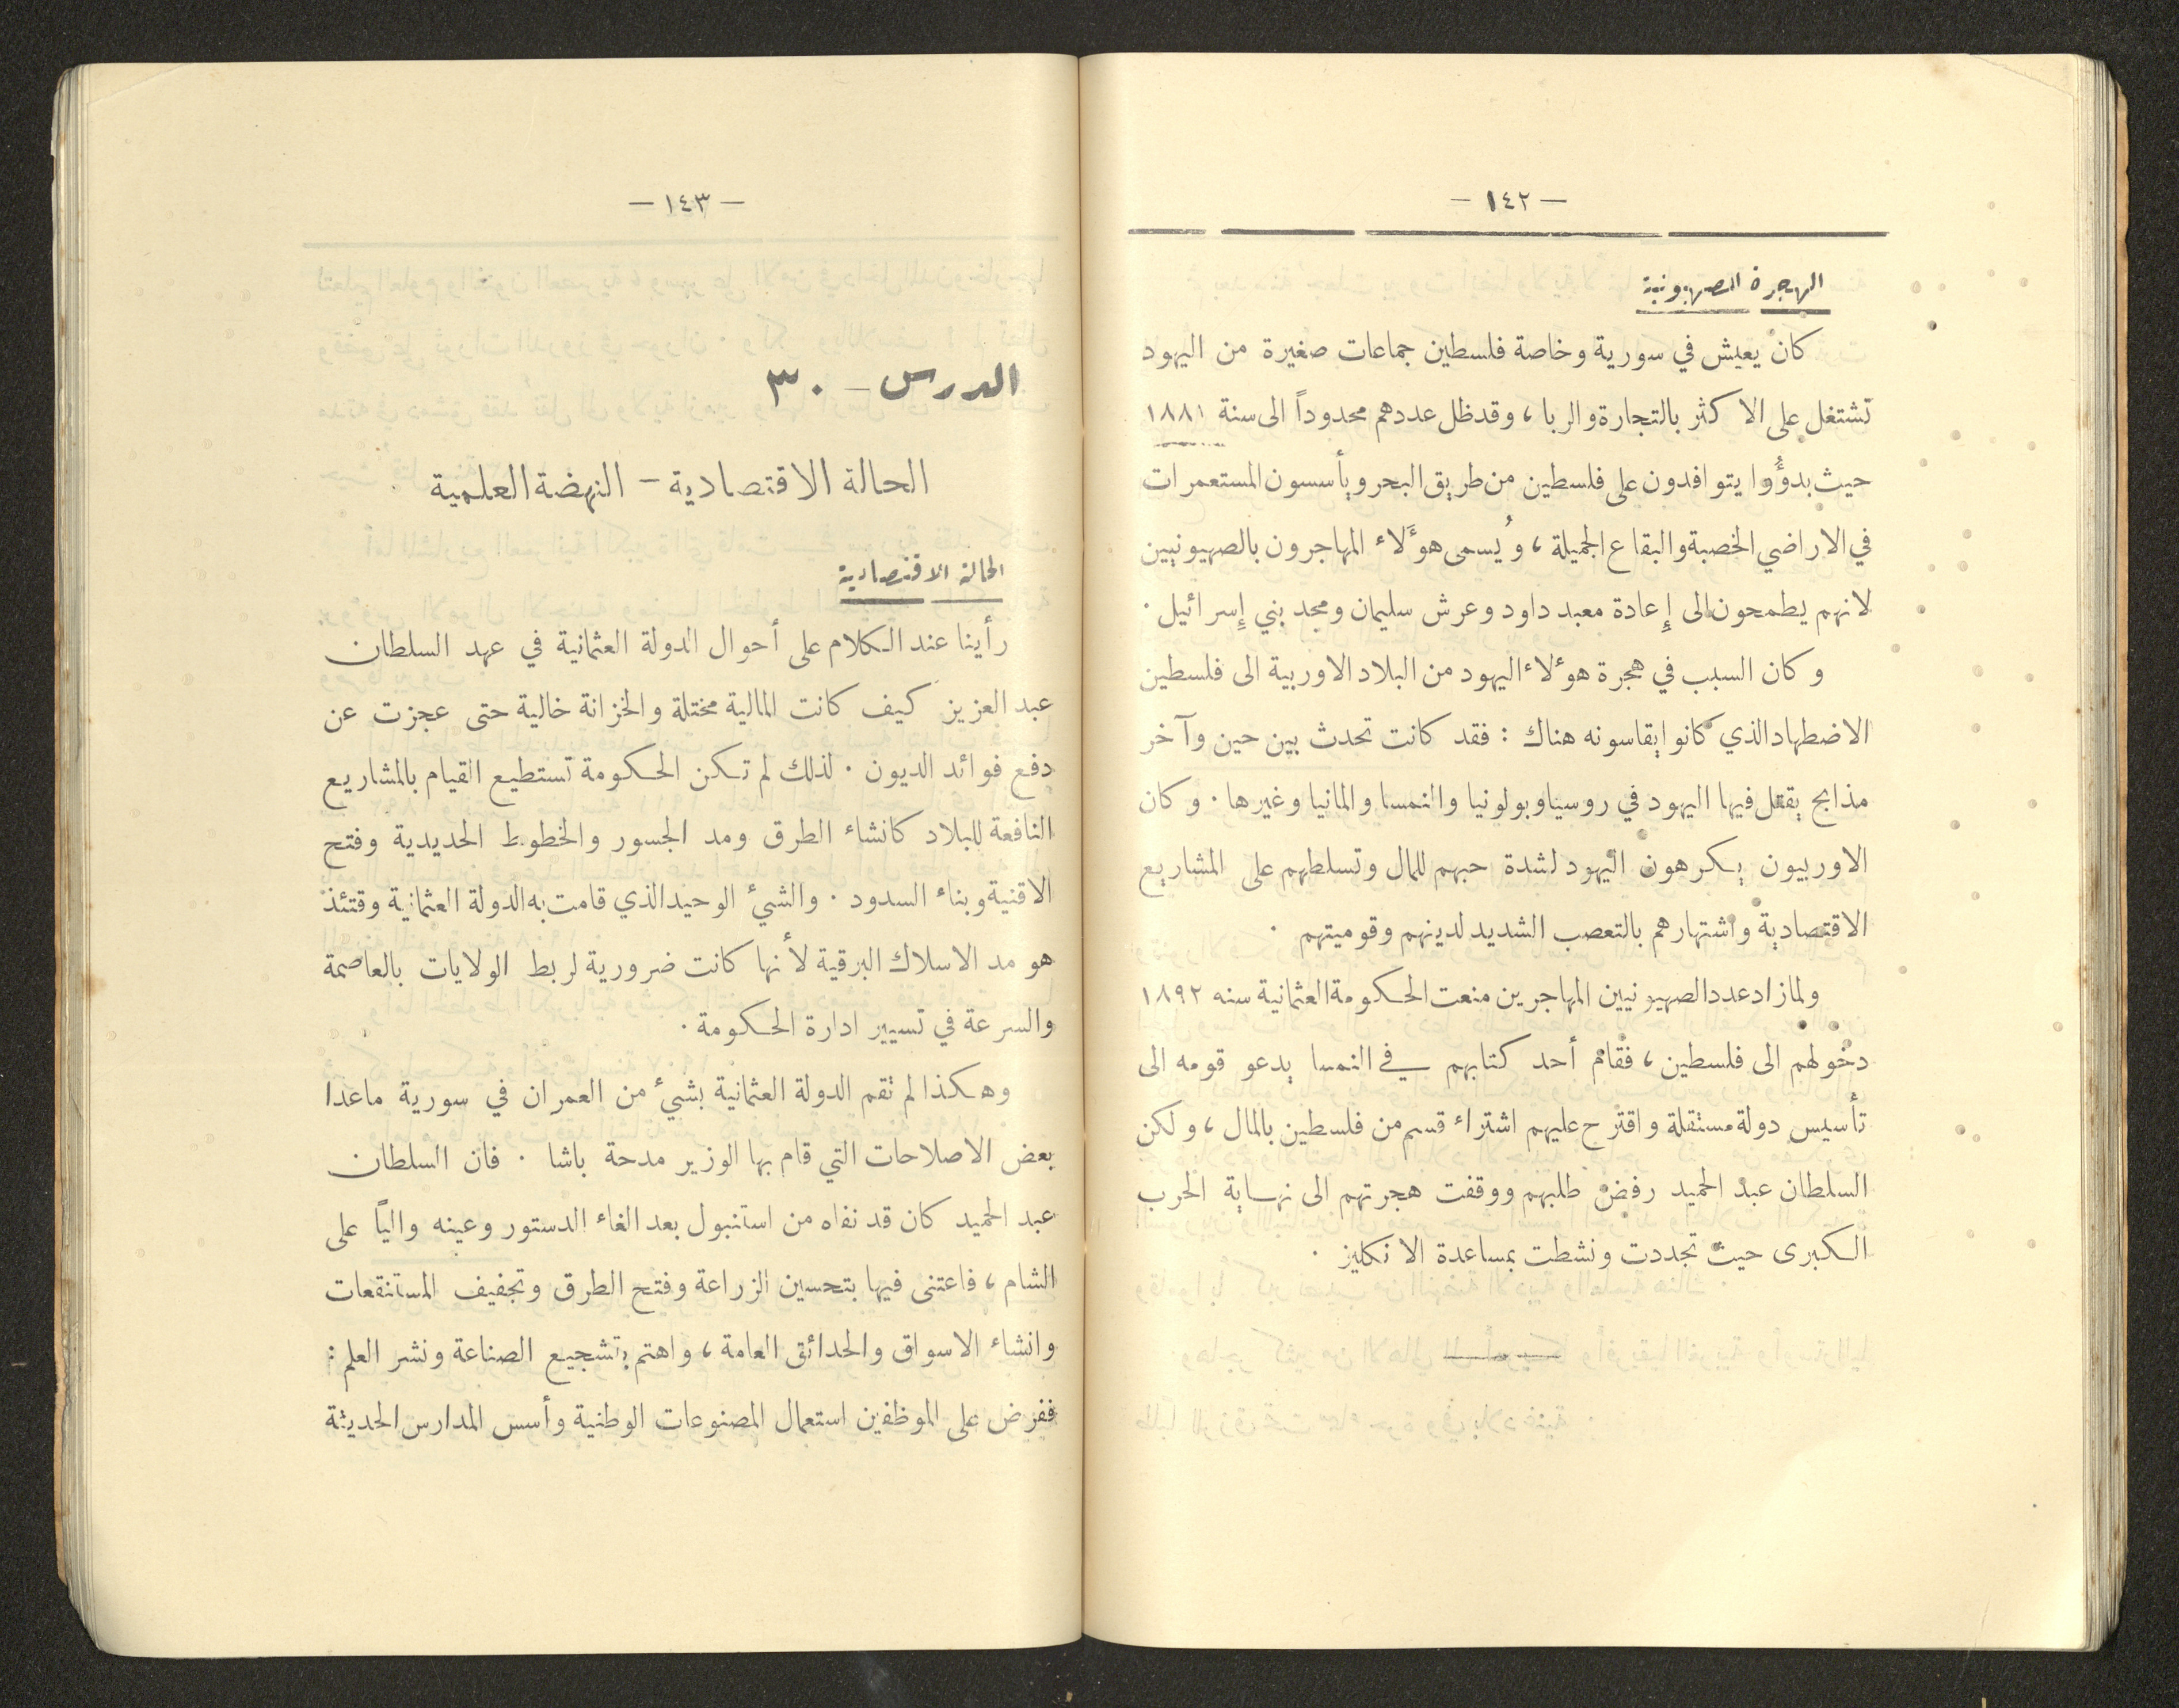 — ١٤٢ —
الهجرة الصهيونية
كان يعيش في سورية وخاصة فلسطين جماعات صغيرة من اليهود
تشتغل على الاكثر بالتجارة والربا ، وقد ظل عددهم محدوداً الى سنة ١٨٨١
حيث بدؤُوا يتوافدون على فلسطين من طريق البحر ويأسسون المستعمرات
في الاراضي الخصبة والبقاع الجميلة ، ويُسمى هوءَلاء المهاجرون بالصهيونيين
لانهم يطمحون الى إِعادة معبد داود وعرش سليمان ومجد بني إِسرائيل .
وكان السبب في هجرة هوءلاء اليهود من البلاد الاوربية الى فلسطين
الاضطهاد الذي كانوا يقاسونه هناك : فقد كانت تحدث بين حين وآخر
مذابح يقتل فيها اليهود في روسيا وبولونيا والنمسا والمانيا وغيرها . وكان
الاوربيون يكرهون اليهود لشدة حبهم للمال وتسلطهم على المشاريع
الاقتصادية واشتهارهم بالتعصب الشديد لدينهم وقوميتهم .
ولما زاد عدد الصهيونيين المهاجرين منعت الحكومة العثمانية سنه ١٨٩٢
دخولهم الى فلسطين ، فقام أحد كتابهم في النمسا يدعو قومه الى
تأسيس دولة مستقلة واقترح عليهم اشتراء قسم من فلسطين بالمال ، ولكن
السلطان عبد الحميد رفض طلبهم ووقفت هجرتهم الى نهاية الحرب
الكبرى حيث تجددت ونشطت بمساعدة الانكليز .
— ١٤٣ —
الدرس – ٣٠
الحالة الاقتصادية – النهضة العلمية
الحالة الاقتصادية
رأينا عند الكلام على أحوال الدولة العثمانية في عهد السلطان
عبد العزيز كيف كانت المالية مختلة والخزانة خالية حتى عجزت عن
دفع فوائد الديون . لذلك لم تكن الحكومة تستطيع القيام بالمشاريع
النافعة للبلاد كانشاء الطرق ومد الجسور والخطوط الحديدية وفتح
الاقنية وبناء السدود . والشيء الوحيد الذي قامت به الدولة العثمانية وقتئذ
هو مد الاسلاك البرقية لأنها كانت ضرورية لربط الولايات بالعاصمة
والسرعة في تسيير ادارة الحكومة .
وهكذا لم تقم الدولة العثمانية بشيء من العمران في سورية ماعدا
بعض الاصلاحات التي قام بها الوزير مدحة باشا . فان السلطان
عبد الحميد كان قد نفاه من استنبول بعد الغاء الدستور وعينه والياً على
الشام ، فاعتنى فيها بتحسين الزراعة وفتح الطرق وتجفيف المستنقعات
وانشاء الاسواق والحدائق العامة ، واهتم بتشجيع الصناعة ونشر العلم :
ففرض على الموظفين استعمال المصنوعات الوطنية وأسس المدارس الحديثة